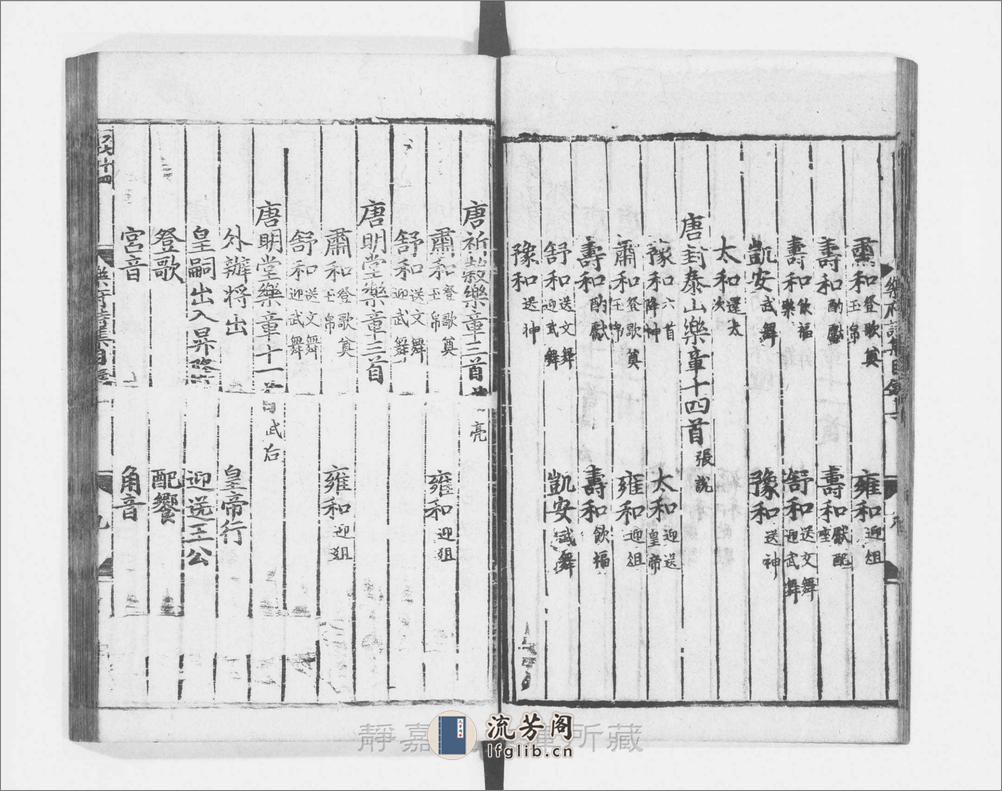 肅和登歌奠玉帛 雍和迎俎
壽和酌獻 壽和獻配座
壽和飲福樂 舒和送文舞迎武舞
凱安武舞 豫和送神
太和還大次
唐封泰山樂章十四首張說
豫和六首降神 太和迎送皇帝
肅和登歌奠玉帛 雍和迎俎
壽和酌獻 壽和飲福
舒和送文舞迎武舞 凱安武舞
豫和送神
唐祈穀樂章三首 亮
肅和登歌奠玉帛 雍和迎俎
舒和送文舞迎武舞
唐明堂樂章三首
肅和登歌奠玉帛 雍和迎俎
舒和送文舞迎武舞
唐明堂樂章十一首武后
外辦將出 皇帝行
皇嗣出入昇降 迎送王公
登歌 配饗
宮音 角音
樂府詩集目錄
九
静嘉 所藏
流芳阁
lfglib.cn